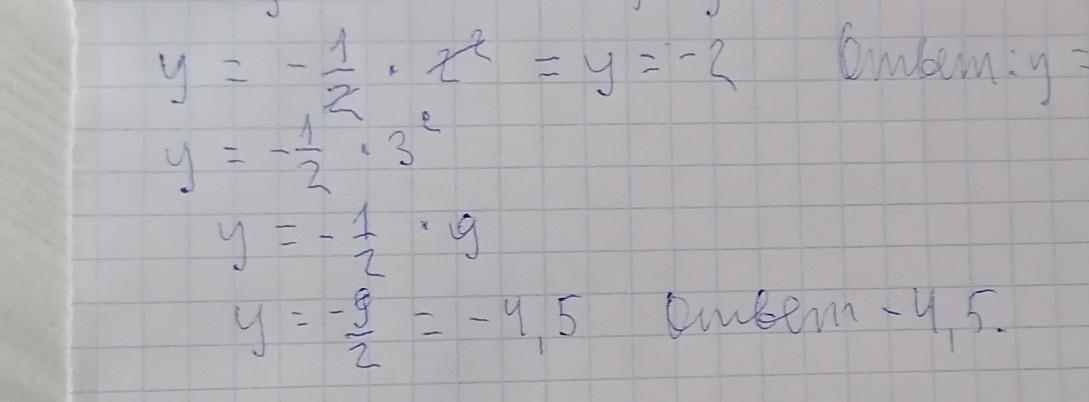 y = -1/2 · 2² = y = -2 Ответ: y =
y = -1/2 · 3²
y = -1/2 · 9
y = -9/2 = -4,5 Ответ -4,5.